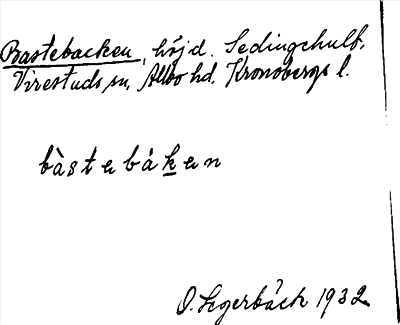 Bastebacken, höjd. Sedingehult,
Virestads sn, Allbo hd. Kronobergs l.
bàstebáken
O. Segerbäck 1932